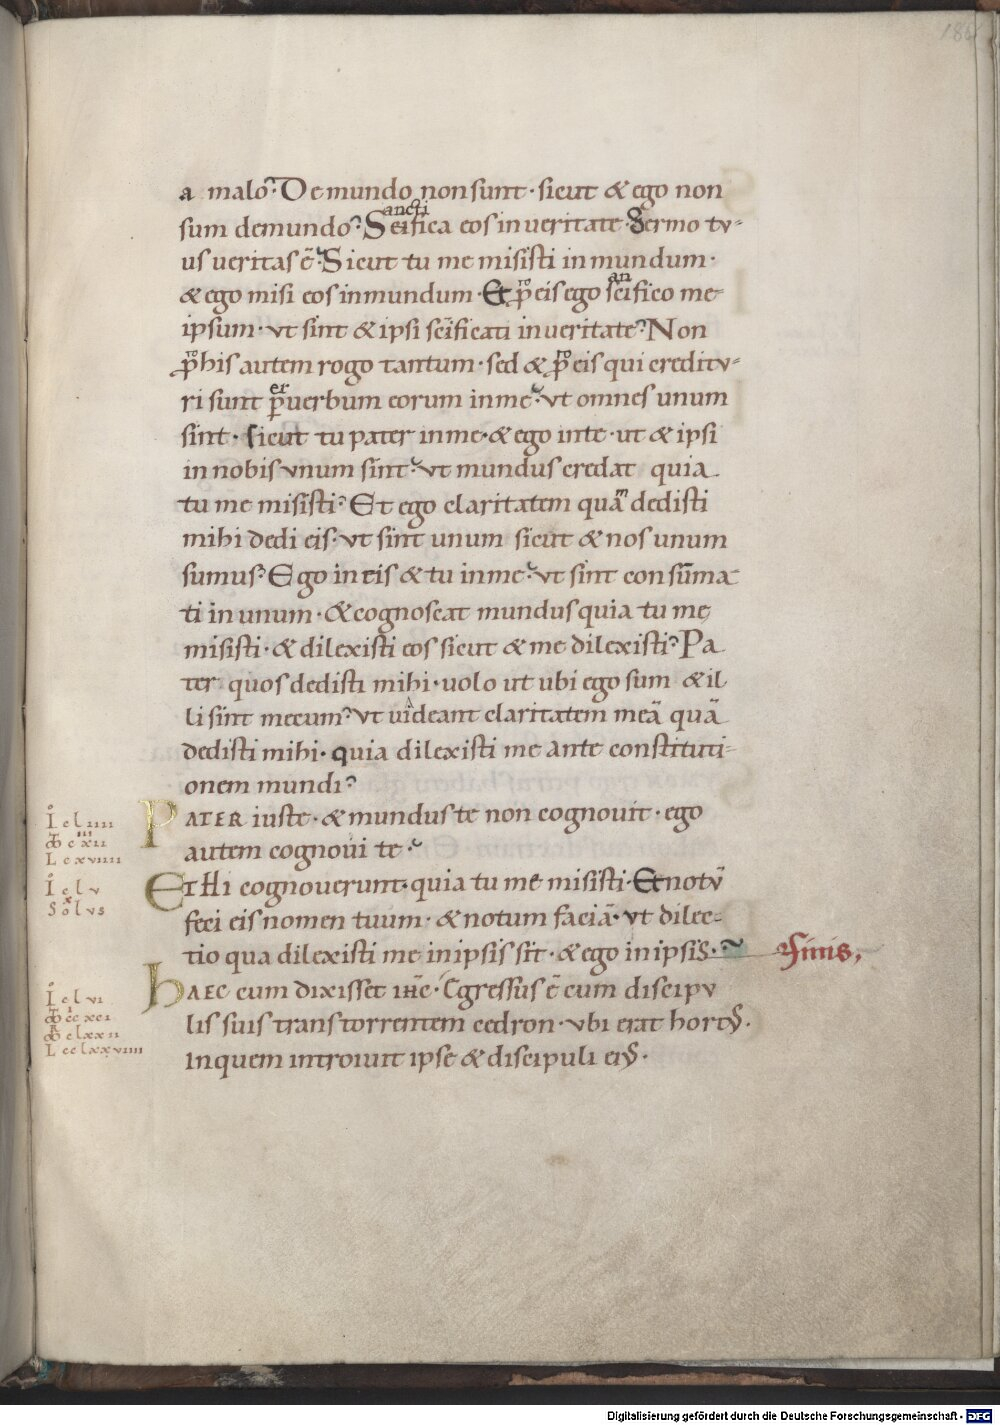 186
a malo. De mundo non sunt. sicut & ego non
sum de mundo. Scīfica eos in veritate. Sermo tu-
ancti
us veritas ē. Sicut tu me misisti in mundum.
& ego misi eos in mundum. Et p̄ eis ego scīfico me
ro an
ipsum. ut sint & ipsi scīficati in veritate. Non
p̄ his autem rogo tantum. sed & p̄ eis qui creditu-
ro ro
ri sunt p̄ verbum eorum in me. ut omnes unum
er
sint. sicut tu pater in me. & ego in te. ut & ipsi
in nobis unum sint. ut mundus credat quia
tu me misisti. Et ego claritatem quā dedisti
mihi dedi eis. ut sint unum sicut & nos unum
sumus. Ego in eis & tu in me. ut sint consūma
ti in unum. & cognoscat mundus quia tu me
misisti. & dilexisti eos sicut & me dilexisti. Pa
ter quos dedisti mihi. volo ut ubi ego sum & il
li sint mecum. ut videant claritatem meā quā
dedisti mihi. quia dilexisti me ante constituti-
onem mundi.
PATER iuste. & mundus te non cognovit. ego
autem cognovi te.
ET Hi cognoverunt. quia tu me misisti. Et notū
feci eis nomen tuum. & notum faciā. ut dilec-
tio qua dilexisti me in ipsis sit. & ego in ipsis.
finis,
HAEC cum dixisset iħc. Egressus ē cum discipu
lis suis trans torrentem cedron. ubi erat hortꝰ.
in quem introiuit ipse & discipuli eiꝰ.
I clIIII
L cxvIIII
I clv
Solvs
I clvi
L cclxxvIIII
Digitalisierung gefördert durch die Deutsche Forschungsgemeinschaft - DFG